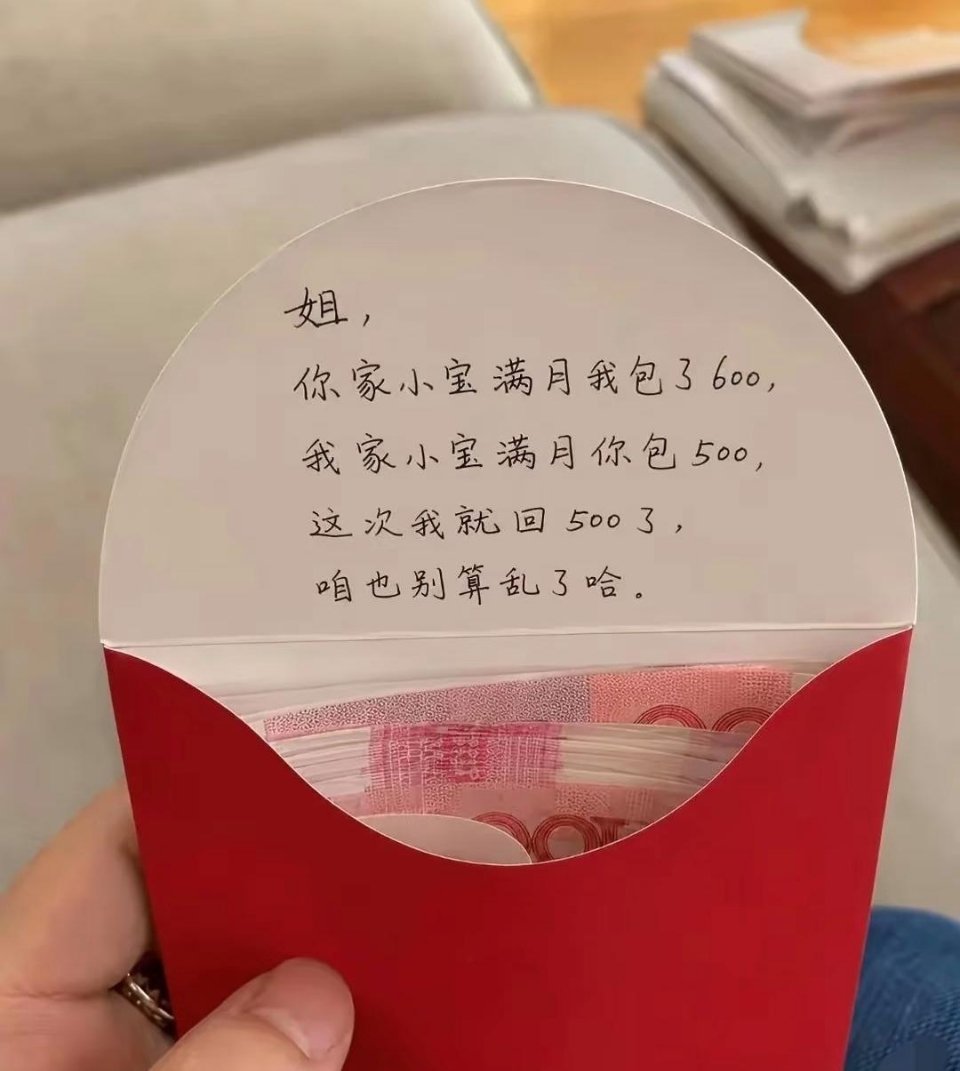 姐，
你家小宝满月我包了600，
我家小宝满月你包500，
这次我就回500了，
咱也别算乱了哈。